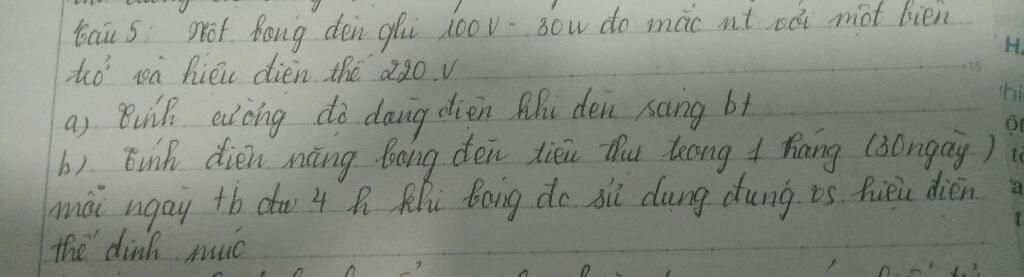 Câu 5: Một bóng đèn ghi 100V - 30W đc mắc nt với một biến
trở và hiệu điện thế 220.V
a) Tính cường độ dòng điện khi đèn sáng bt
b) Tính điện năng bóng đèn tiêu thụ trong 1 tháng (30 ngày)
mỗi ngày tb 4 h khi bóng đc sử dụng đúng vs hiệu điện
thế định mức